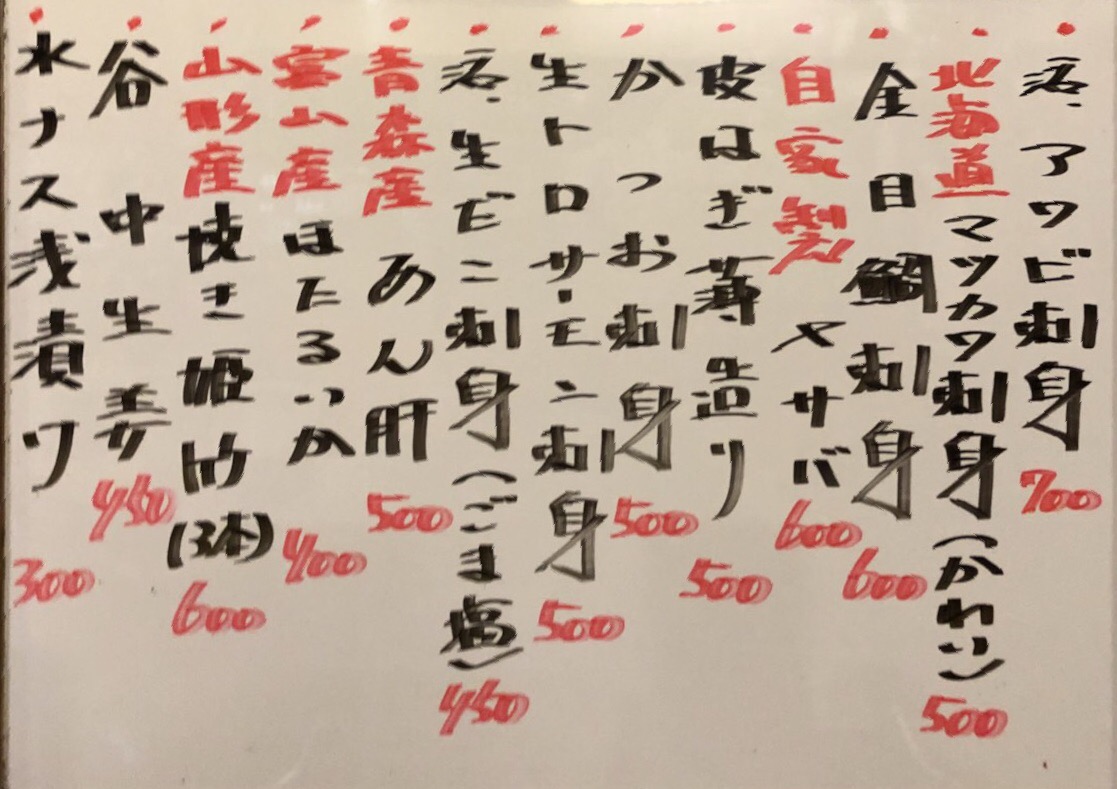 活、アワビ刺身 700
北海道マツカワ刺身(かれい) 500
金目鯛刺身 600
自家製 〆サバ 600
皮はぎ薄造り 500
かつお刺身 500
生トロサーモン刺身 500
活、生ビニ刺身(ごま塩) 450
青森産 あん肝 500
富山産 ほたるいか 400
山形産 焼き姫竹(3本) 600
谷中生姜 450
水ナス浅漬ケ 300